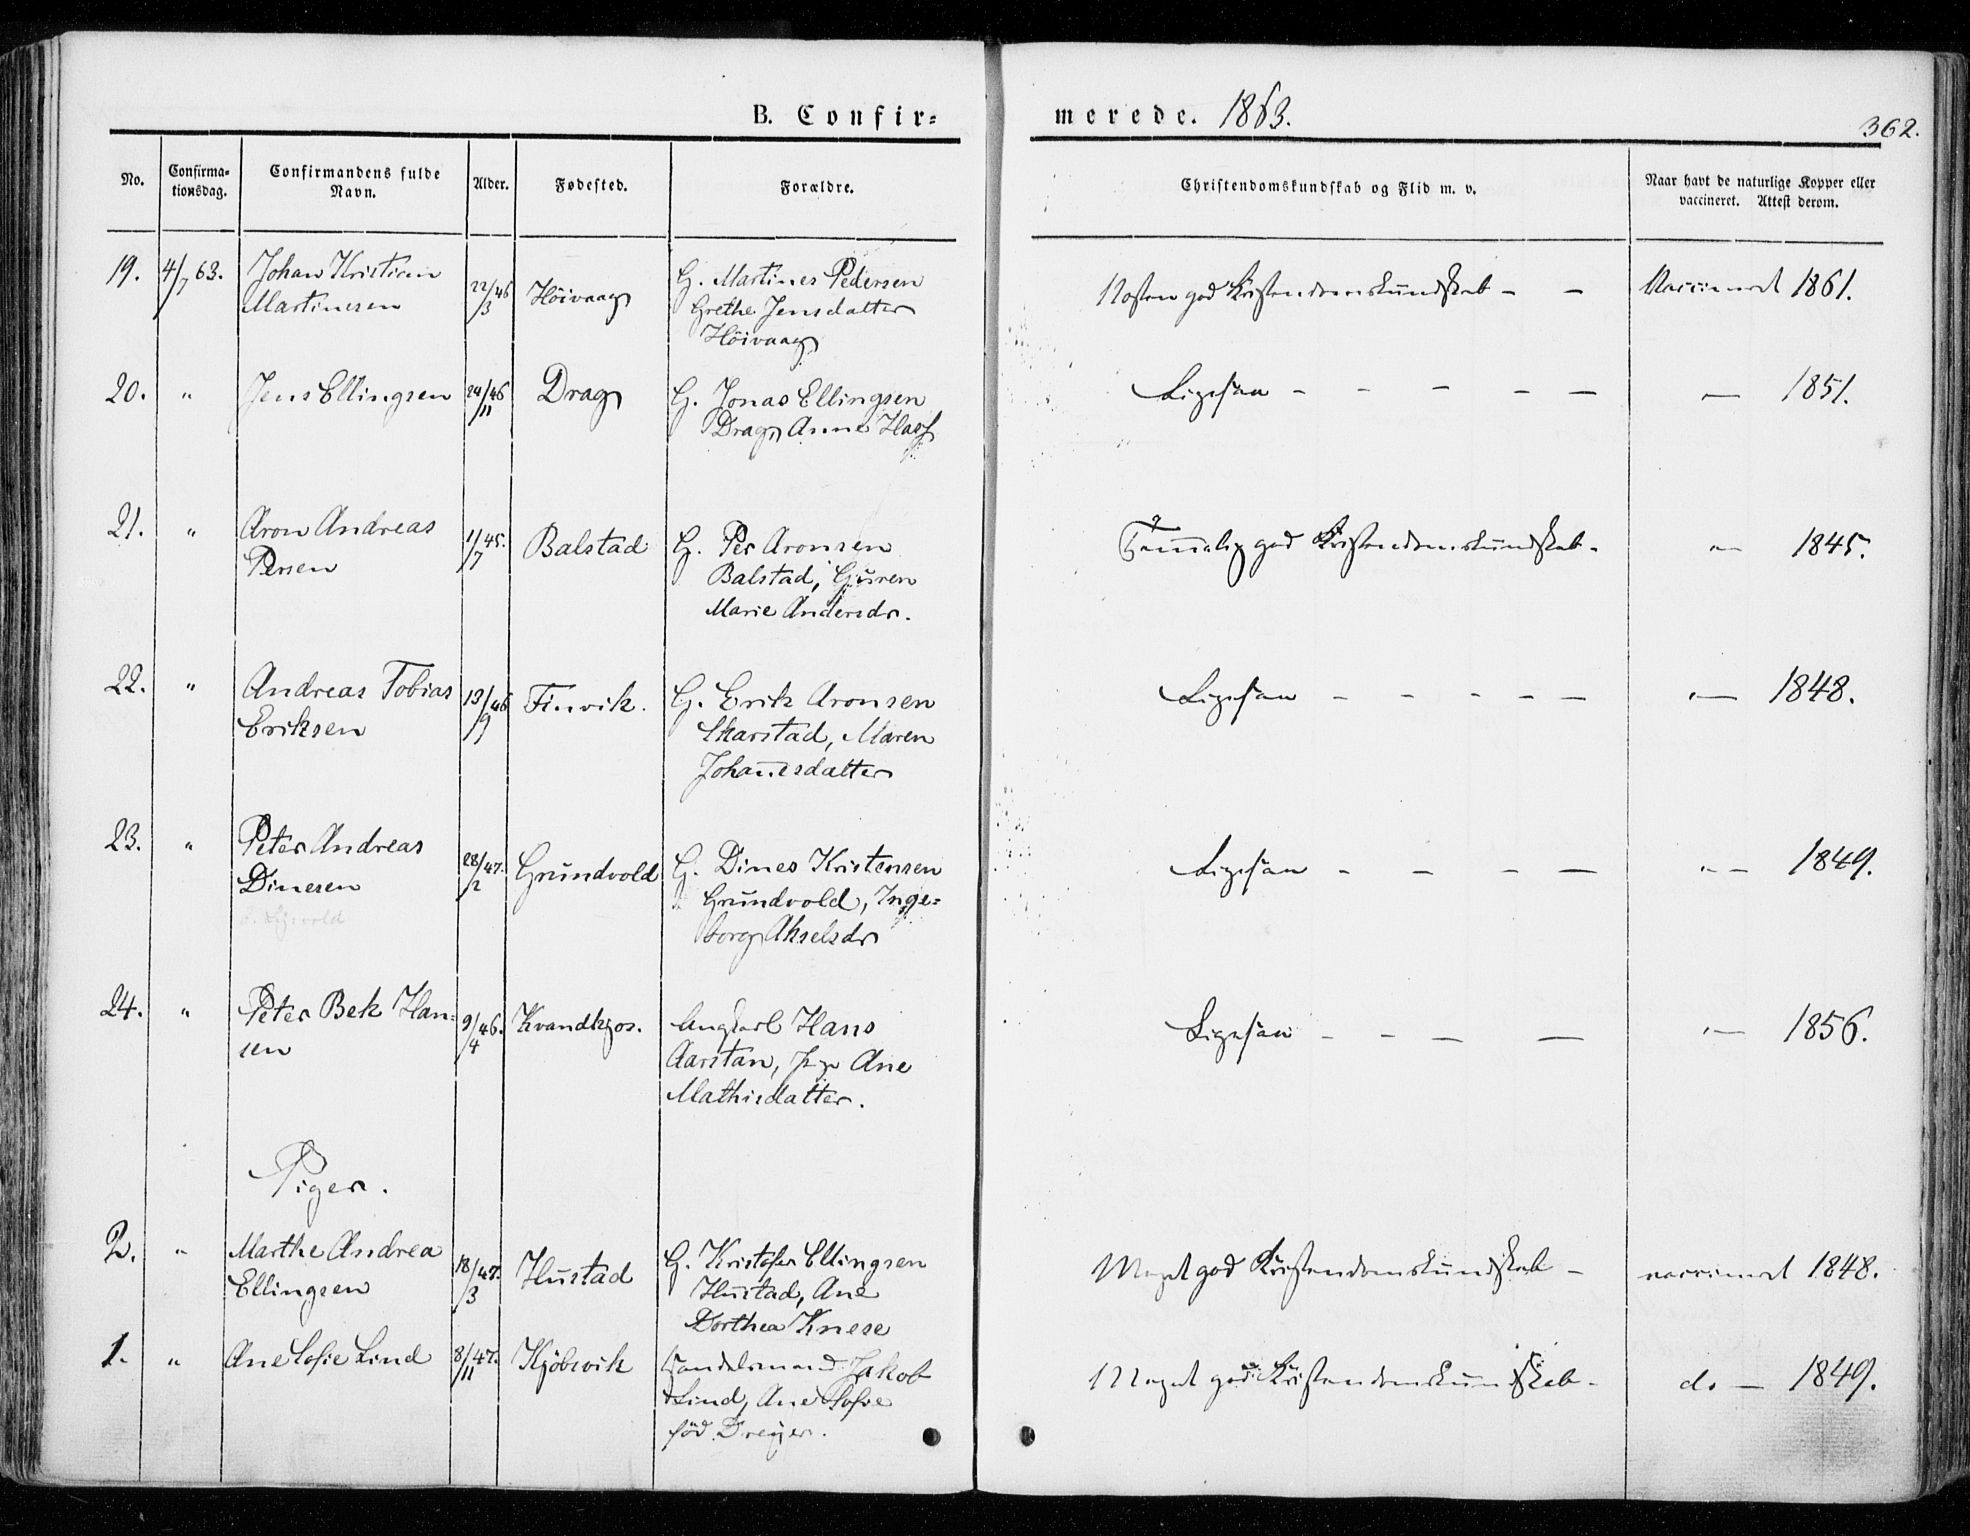 B. Confir-
merede. 1863.
362.
No.
Confirma-
tionsdag.
Confirmandens fulde
Navn.
Alder.
Fødested.
Forældre.
Christendomskundskab og Flid m. v.
Naar havt de naturlige Kopper eller
vaccineret. Attest derom.
19. 4/7 63. Johan Kristian
Martinesen
22/3 46 Höivaag
G. Martines Pedersen
Grethe Jensdatter
Höivaag
Nosten god Kristendomskundskab - -
Vaccineret 1861.
20. " Jens Ellingsen 24/11 46 Drag
G. Jonas Ellingsen
Drag, Anne
Ligesaa - - - - -
— 1851.
21. " Aron Andreas
Persen
1/7 45. Balstad
G. Per Aronsen
Balstad, Guren
Marie Andersdr.
Temmelig god Kristendomskundskab -
" 1845.
22. " Andreas Tobias
Eriksen
13/9 46 Finvik.
G. Erik Aronsen
Skarstad, Maren
Johannesdatter
Ligesaa - - - - -
" — 1848.
23. " Peter Andreas
Dinesen
28/2 47. Grundvold
G. Dines Kristensen
Grundvold, Inge=
borg Akselsdr
Ligesaa - - - -
" - 1849.
24. " Peter Bek Han=
sen
9/4 46. Kvandkjos.
Ungkarl Hans
Aarstan, Pige Ane
Mathisdatter.
Ligesaa - - - -
" — 1856.
Piger.
2. " Marthe Andrea
Ellingsen
18/3 47. Hustad
G. Kristofer Ellingsen
Hustad, Ane
Dorthea Knese
Meget god Kristendomskundskab -
vaccineret 1848.
1. " Ane Sofie Lind 8/11 47. Kjöbsvik
Handelsmand Jakob
Lind, Ane Sofie
föd Dreyer.
Meget god Kristendomskundskab -
do — 1849.